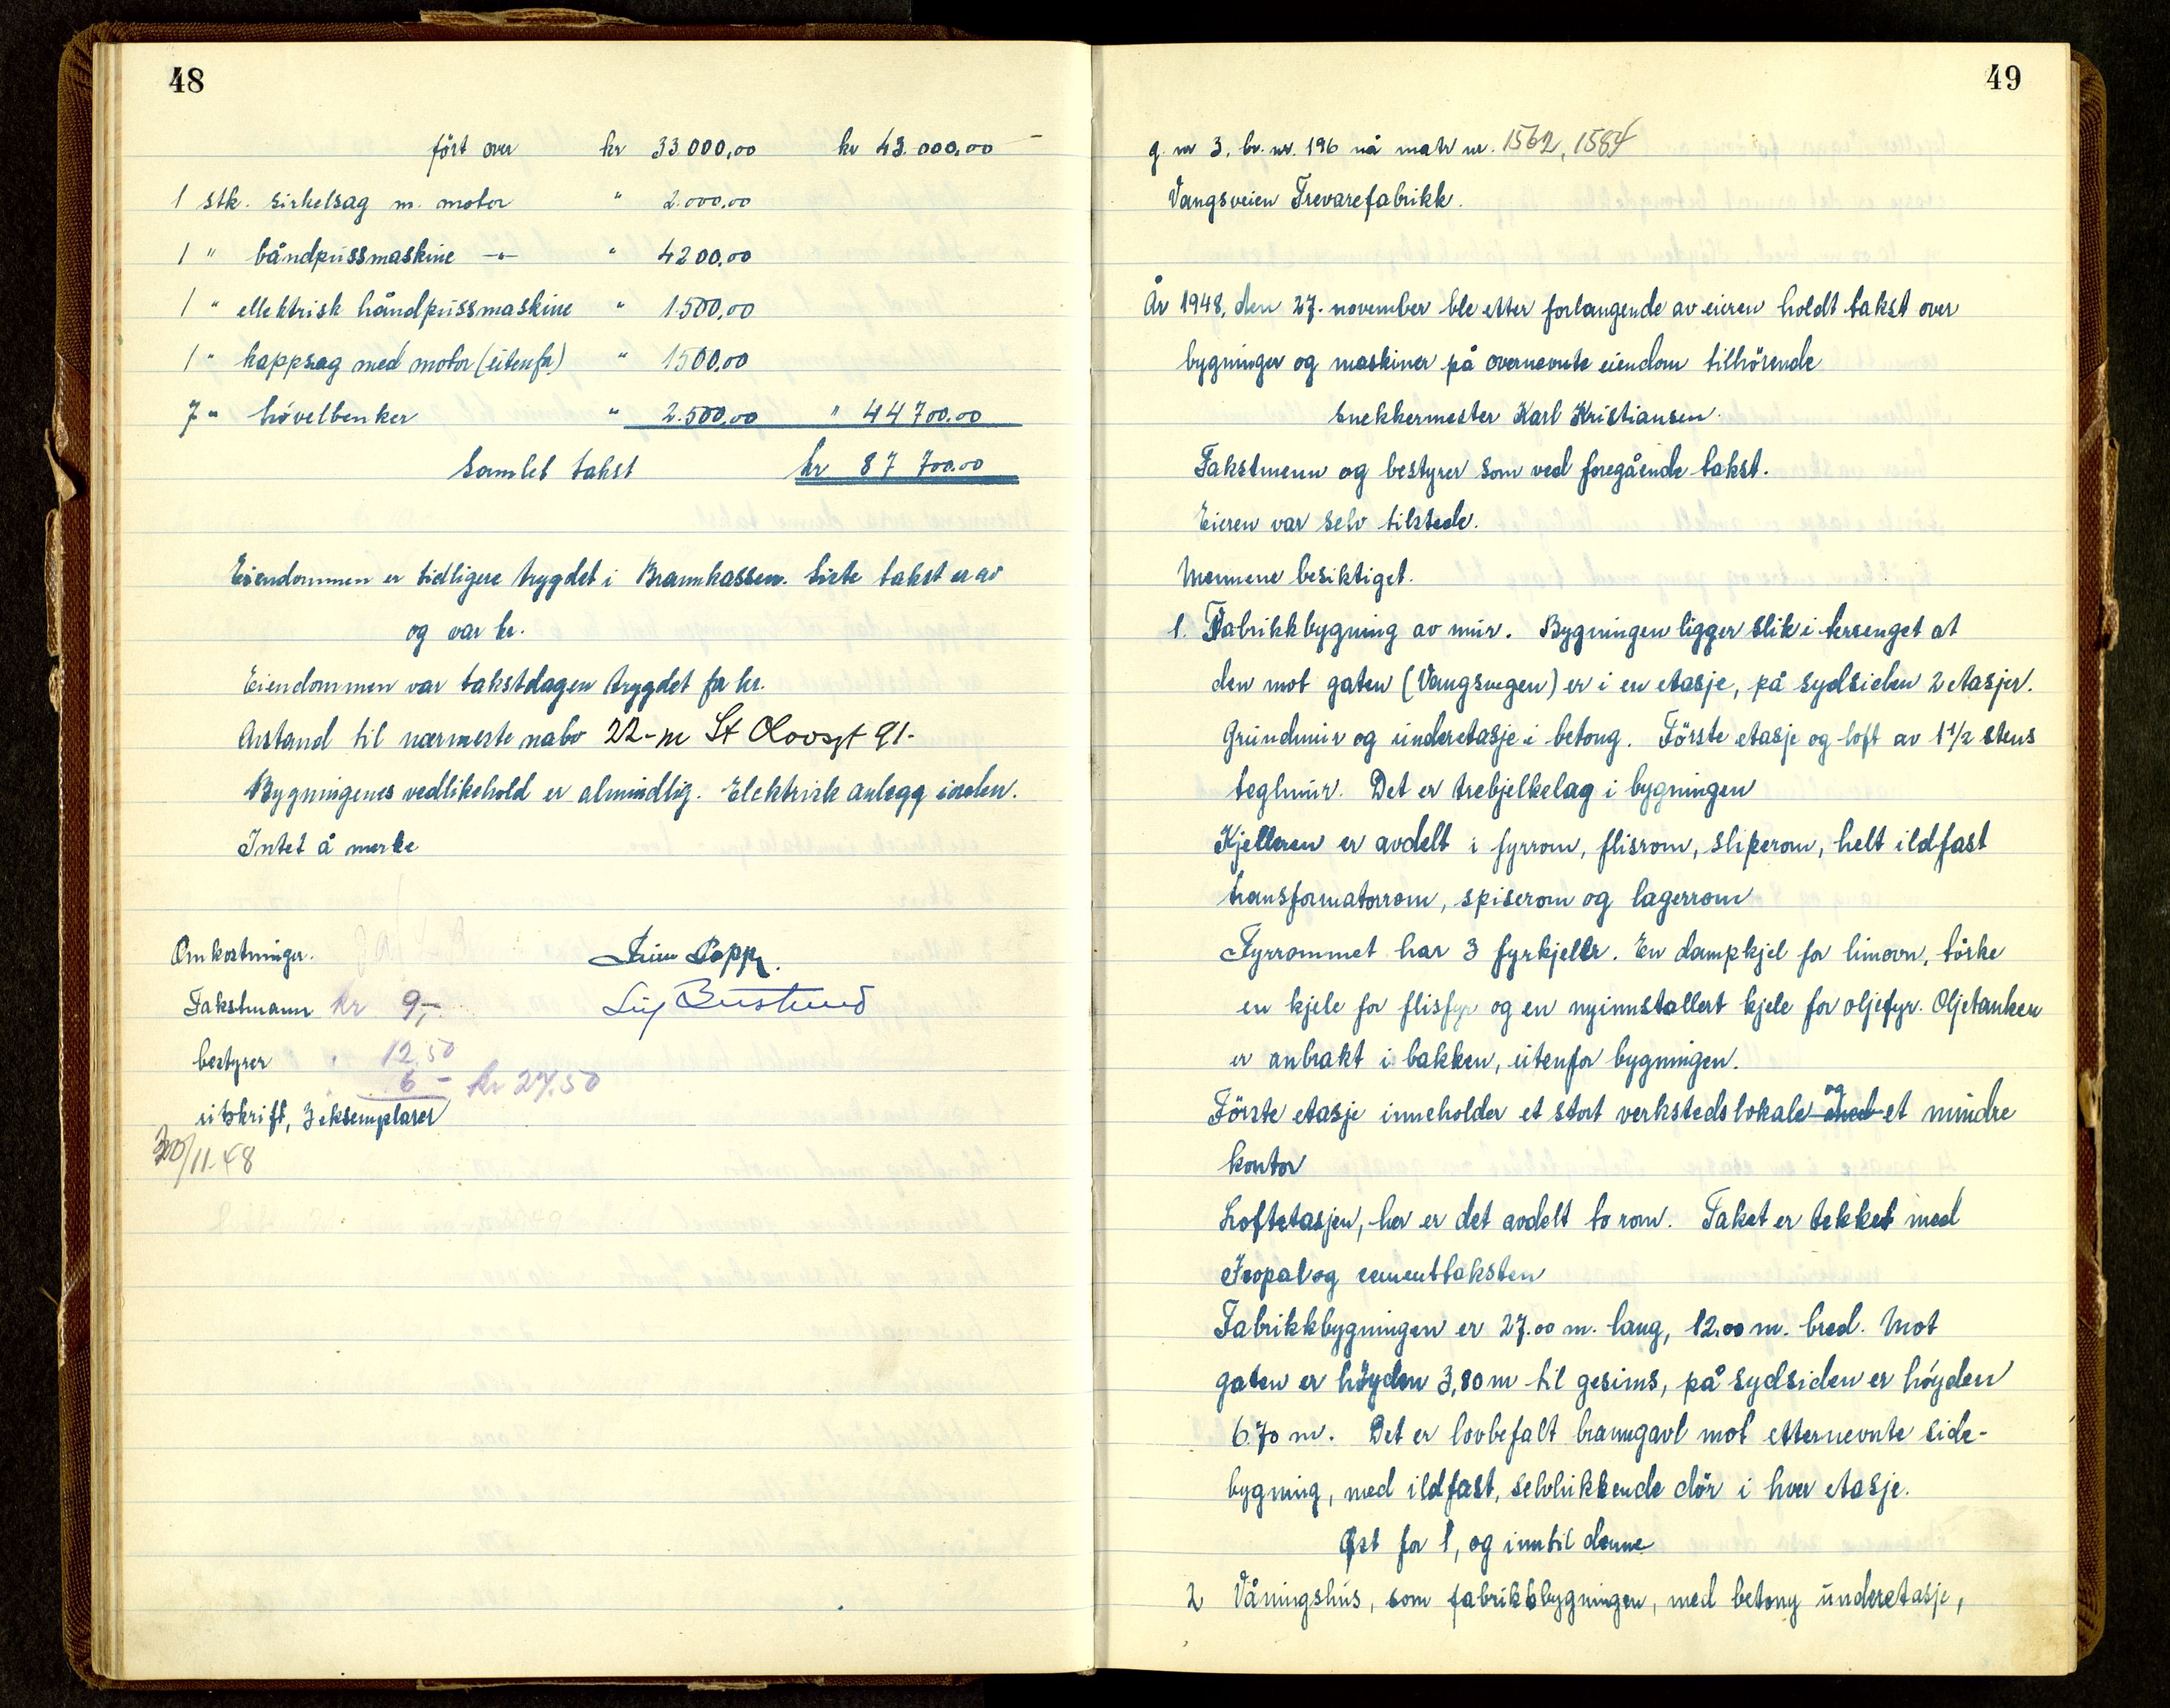 48
ført over kr 33.000,00 kr 43.000,00
1 stk. sirkelsag m. motor " 2.000,00
1 " båndpussmaskine —"— " 4200,00
1 " ellektrisk håndpussmaskine " 1.500,00
1 " kappsag med motor (utenfr) " 1500,00
7 " høvelbenker " 2.500,00 " 44700.00
Samlet takst kr 87 700.00
Eiendommen er tidligere trygdet i Brannkassen. Siste takst er av
og var kr.
Eiendommen var takstdagen trygdet for kr.
Avstand til nærmeste nabo 22-m St Olavsgt 91-
Bygningenes vedlikehold er almindlig. Elektrisk anlegg
Intet å merke
Omkostninger.
Takstmann kr 9,-
bestyrer " 12,50
6 - kr 27.50
utskrift, 3 eksemplarer
30/11-48
49
g. nr 3, br. nr. 196 nå matr nr. 1562, 1584
Vangsveien Trevarefabrikk.
År 1948, den 27. november ble etter forlangende av eieren holdt takst over
bygninger og maskiner på overnevnte eiendom tilhörende
Snekkermester Karl Kristiansen.
Takstmenn og bestyrer som ved foregående takst.
Eieren var selv tilstede.
Mennene besiktiget.
1. Fabrikkbygning av mur. Bygningen ligger slik i terrenget at
den mot gaten (Vangsvegen) er i en etasje, på sydsiden 2 etasjer.
Grundmur og underetasje i betong. Förste etasje og loft av 1 1/2 stens
teglmur. Det er trebjelkelag i bygningen
Kjelleren er avdelt i fyrrom, flisrom, sliperom, helt ildfast
transformatorrom, spiserom og lagerrom
Fyrrommet har 3 fyrkjeler. En dampkjel for limovn, törke
en kjele for flisfyr og en nyinnstallert kjele for oljefyr. Oljetanken
er anbrakt i bakken, utenfor bygningen.
Förste etasje inneholder et stort verkstedslokale og et mindre
kontor
Loftetasjen, her er det avdelt to rom. Taket er tekket med
Icopal og cementtaksten
Fabrikkbygningen er 27.00 m. lang, 12.00 m. bred. Mot
gaten er höyden 3,80 m til gesims, på sydsiden er höyden
6.70 m. Det er lovbefalt branngavl mot etternevnte side-
bygning, med ildfast, selvlukkende dör i hver etasje.
Øst for 1, og inntil denne
2 Våningshus, som fabrikkbygningen, med betong underetasje,